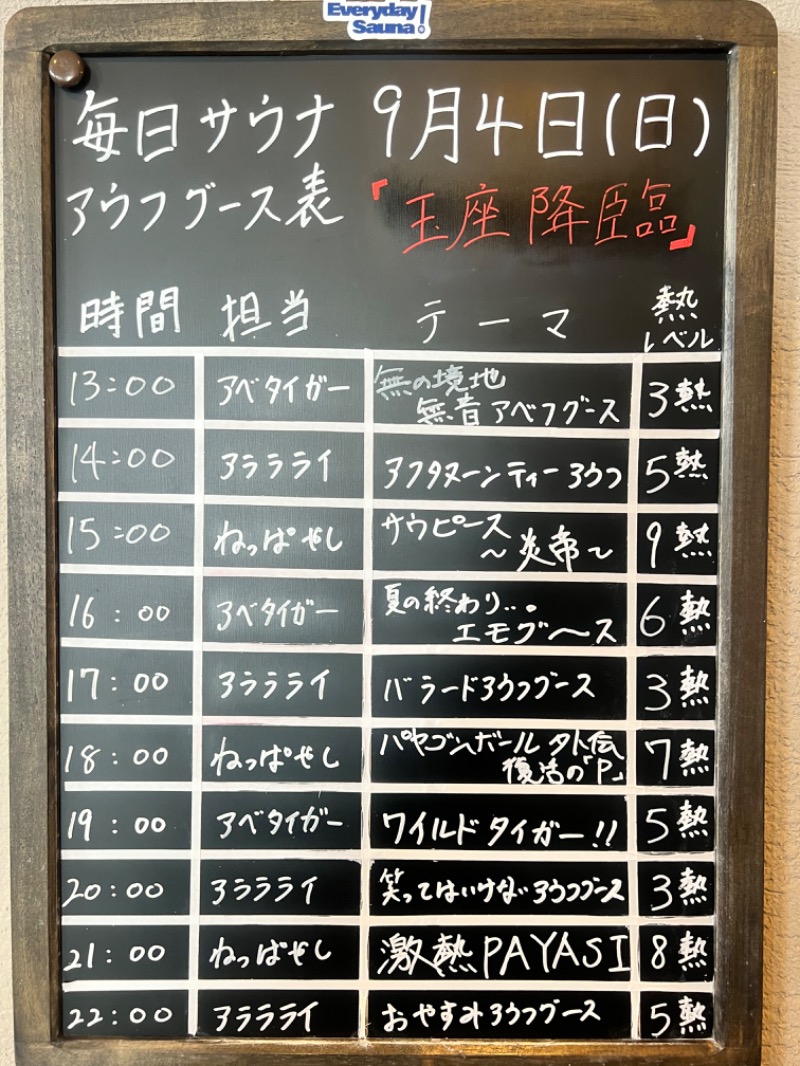 Everyday
Sauna!
毎日サウナ 9月4日(日)
アウフグース表 『玉座降臨』
時間 担当 テーマ 熱レベル
13:00 アベタイガー 無の境地 無音アベフグース 3熱
14:00 アラララライ アフタヌーンティーアウフ 5熱
15:00 ねっぱやし サウピース 〜炎帝〜 9熱
16:00 アベタイガー 夏の終わり... エモグ〜ス 6熱
17:00 アララライ バラードアウフグース 3熱
18:00 ねっぱやし パヤゴンボール外伝 復活の「P」 7熱
19:00 アベタイガー ワイルドタイガー!! 5熱
20:00 アララライ 笑ってはいけないアウフグース 3熱
21:00 ねっぱやし 激熱PAYASI 8熱
22:00 アララライ おやすみアウフグース 5熱